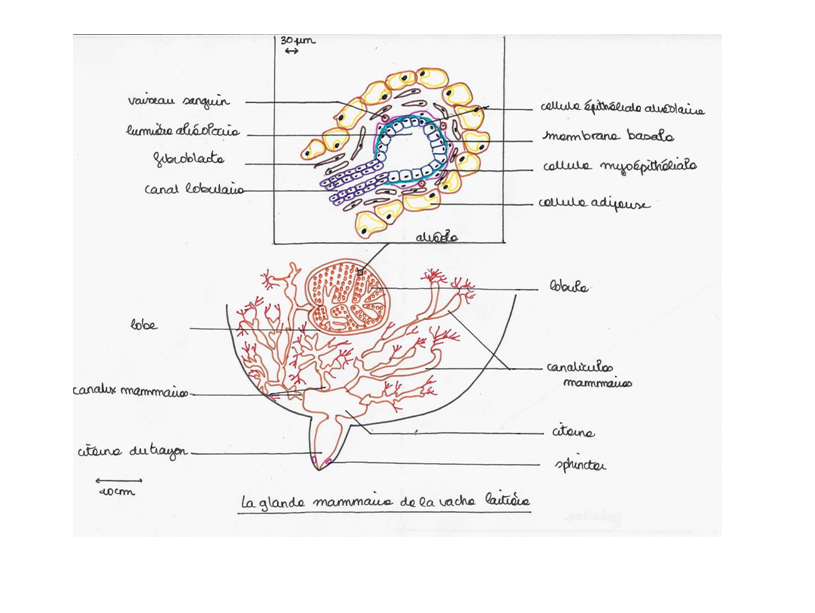 30 µm
vaisseau sanguin
lumière alvéolaire
fibroblaste
canal lobulaire
cellule épithéliale alvéolaire
membrane basale
cellule myoépithéliale
cellule adipeuse
alvéole
lobule
lobe
canalicules
mammaires
canaux mammaires
citerne
citerne du trayon
sphincter
10cm
La glande mammaire de la vache laitière